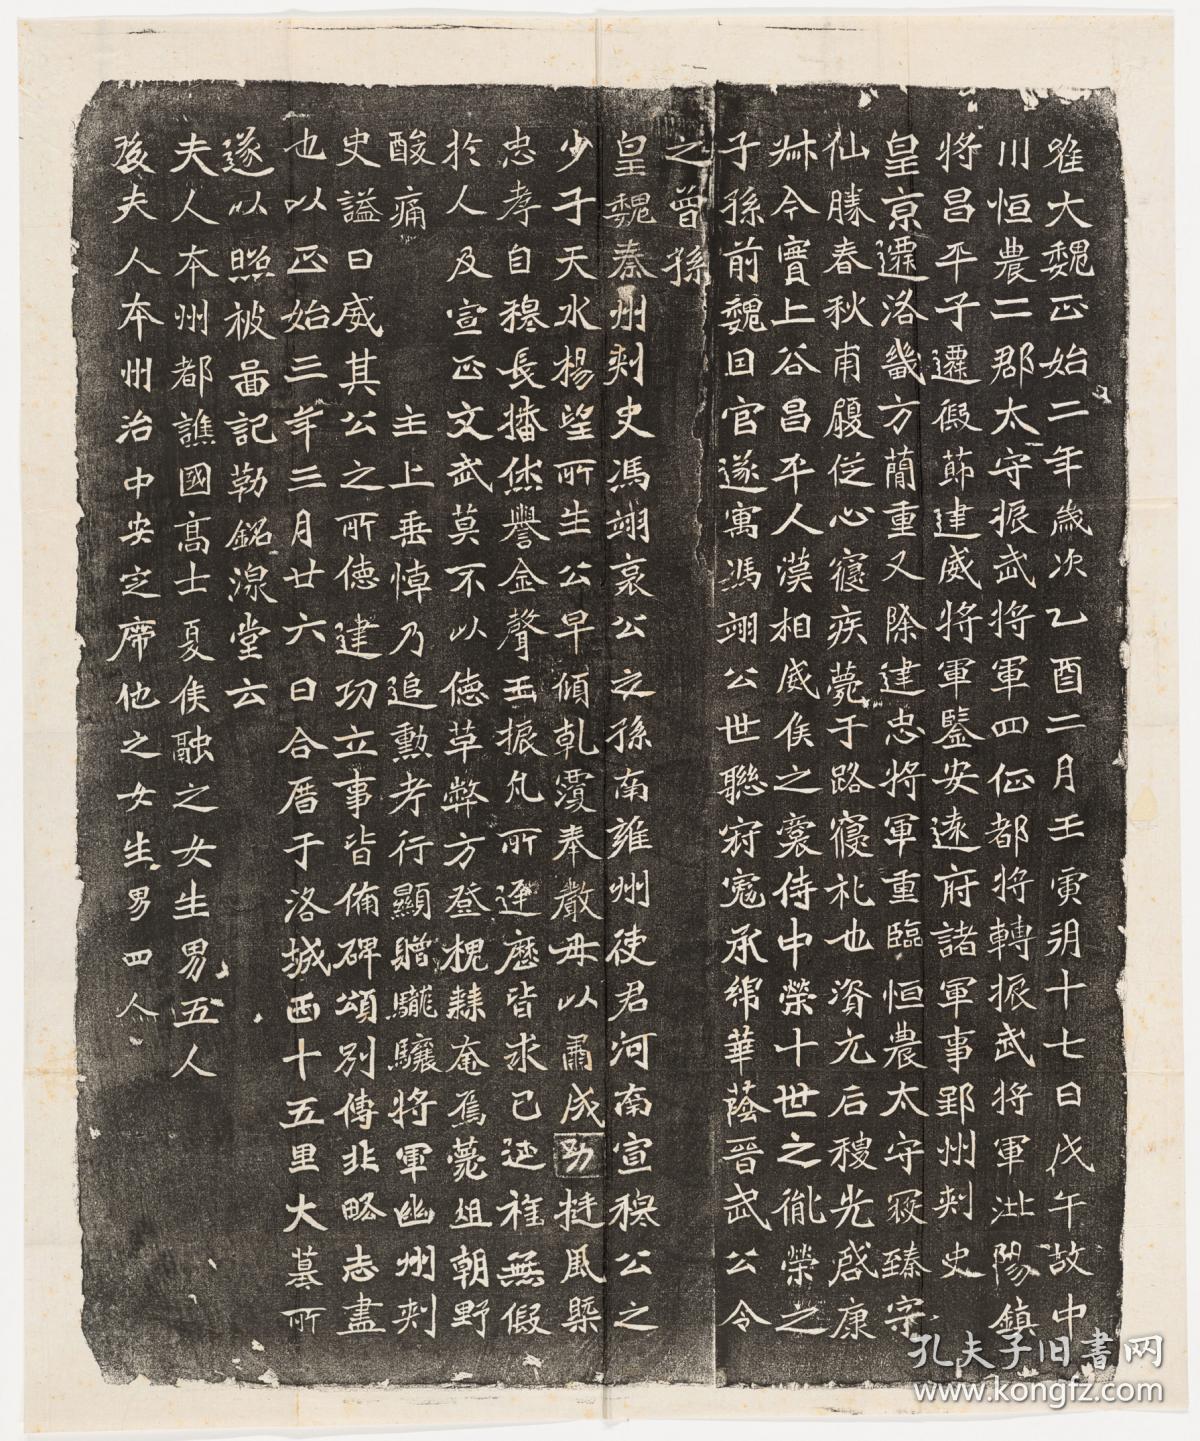 維大魏正始二年歲次乙酉二月壬寅朔十七日戊午故中
川恒農二郡太守振武將軍四征都將轉振武將軍沘陽鎮
將昌平子遷假節建威將軍監安遠府諸軍事郢州刾史
皇京遷洛畿方簡重又除建忠將軍重臨恒農太守寂臻宗
仙勝春秋甫履從心寢疾薨于路寢禮也資元后稷光啓康
叔今實上谷昌平人漢相威侯之裔侍中榮十世之胤榮之
子孫前魏因官遂寓馮翊公世聯冠冕承緜華蔭晉武公令
之曾孫
皇魏秦州刾史馮翊哀公之孫南雍州使君河南宣穆公之
少子天水楊望所生公早傾乾覆奉嚴母以肅成幼挺風槩
忠孝自穆長播休譽金聲玉振凡所逕歷皆求己延福無假
於人及宣正文武莫不以德草弊方登槐棘奄焉薨殂朝野
酸痛　主上垂悼乃追勳考行顯贈驪驤將軍幽州刾
史謚曰威其公之所德建功立事皆備碑頌別傳非略志盡
也以正始三年三月廿六日合厝于洛城西十五里大墓所
遂以照被畾記勒銘湶堂云
夫人本州都譙國高士夏侯融之女生男五人
後夫人本州治中安定席他之女生男四人
孔夫子旧书网
www.kongfz.com